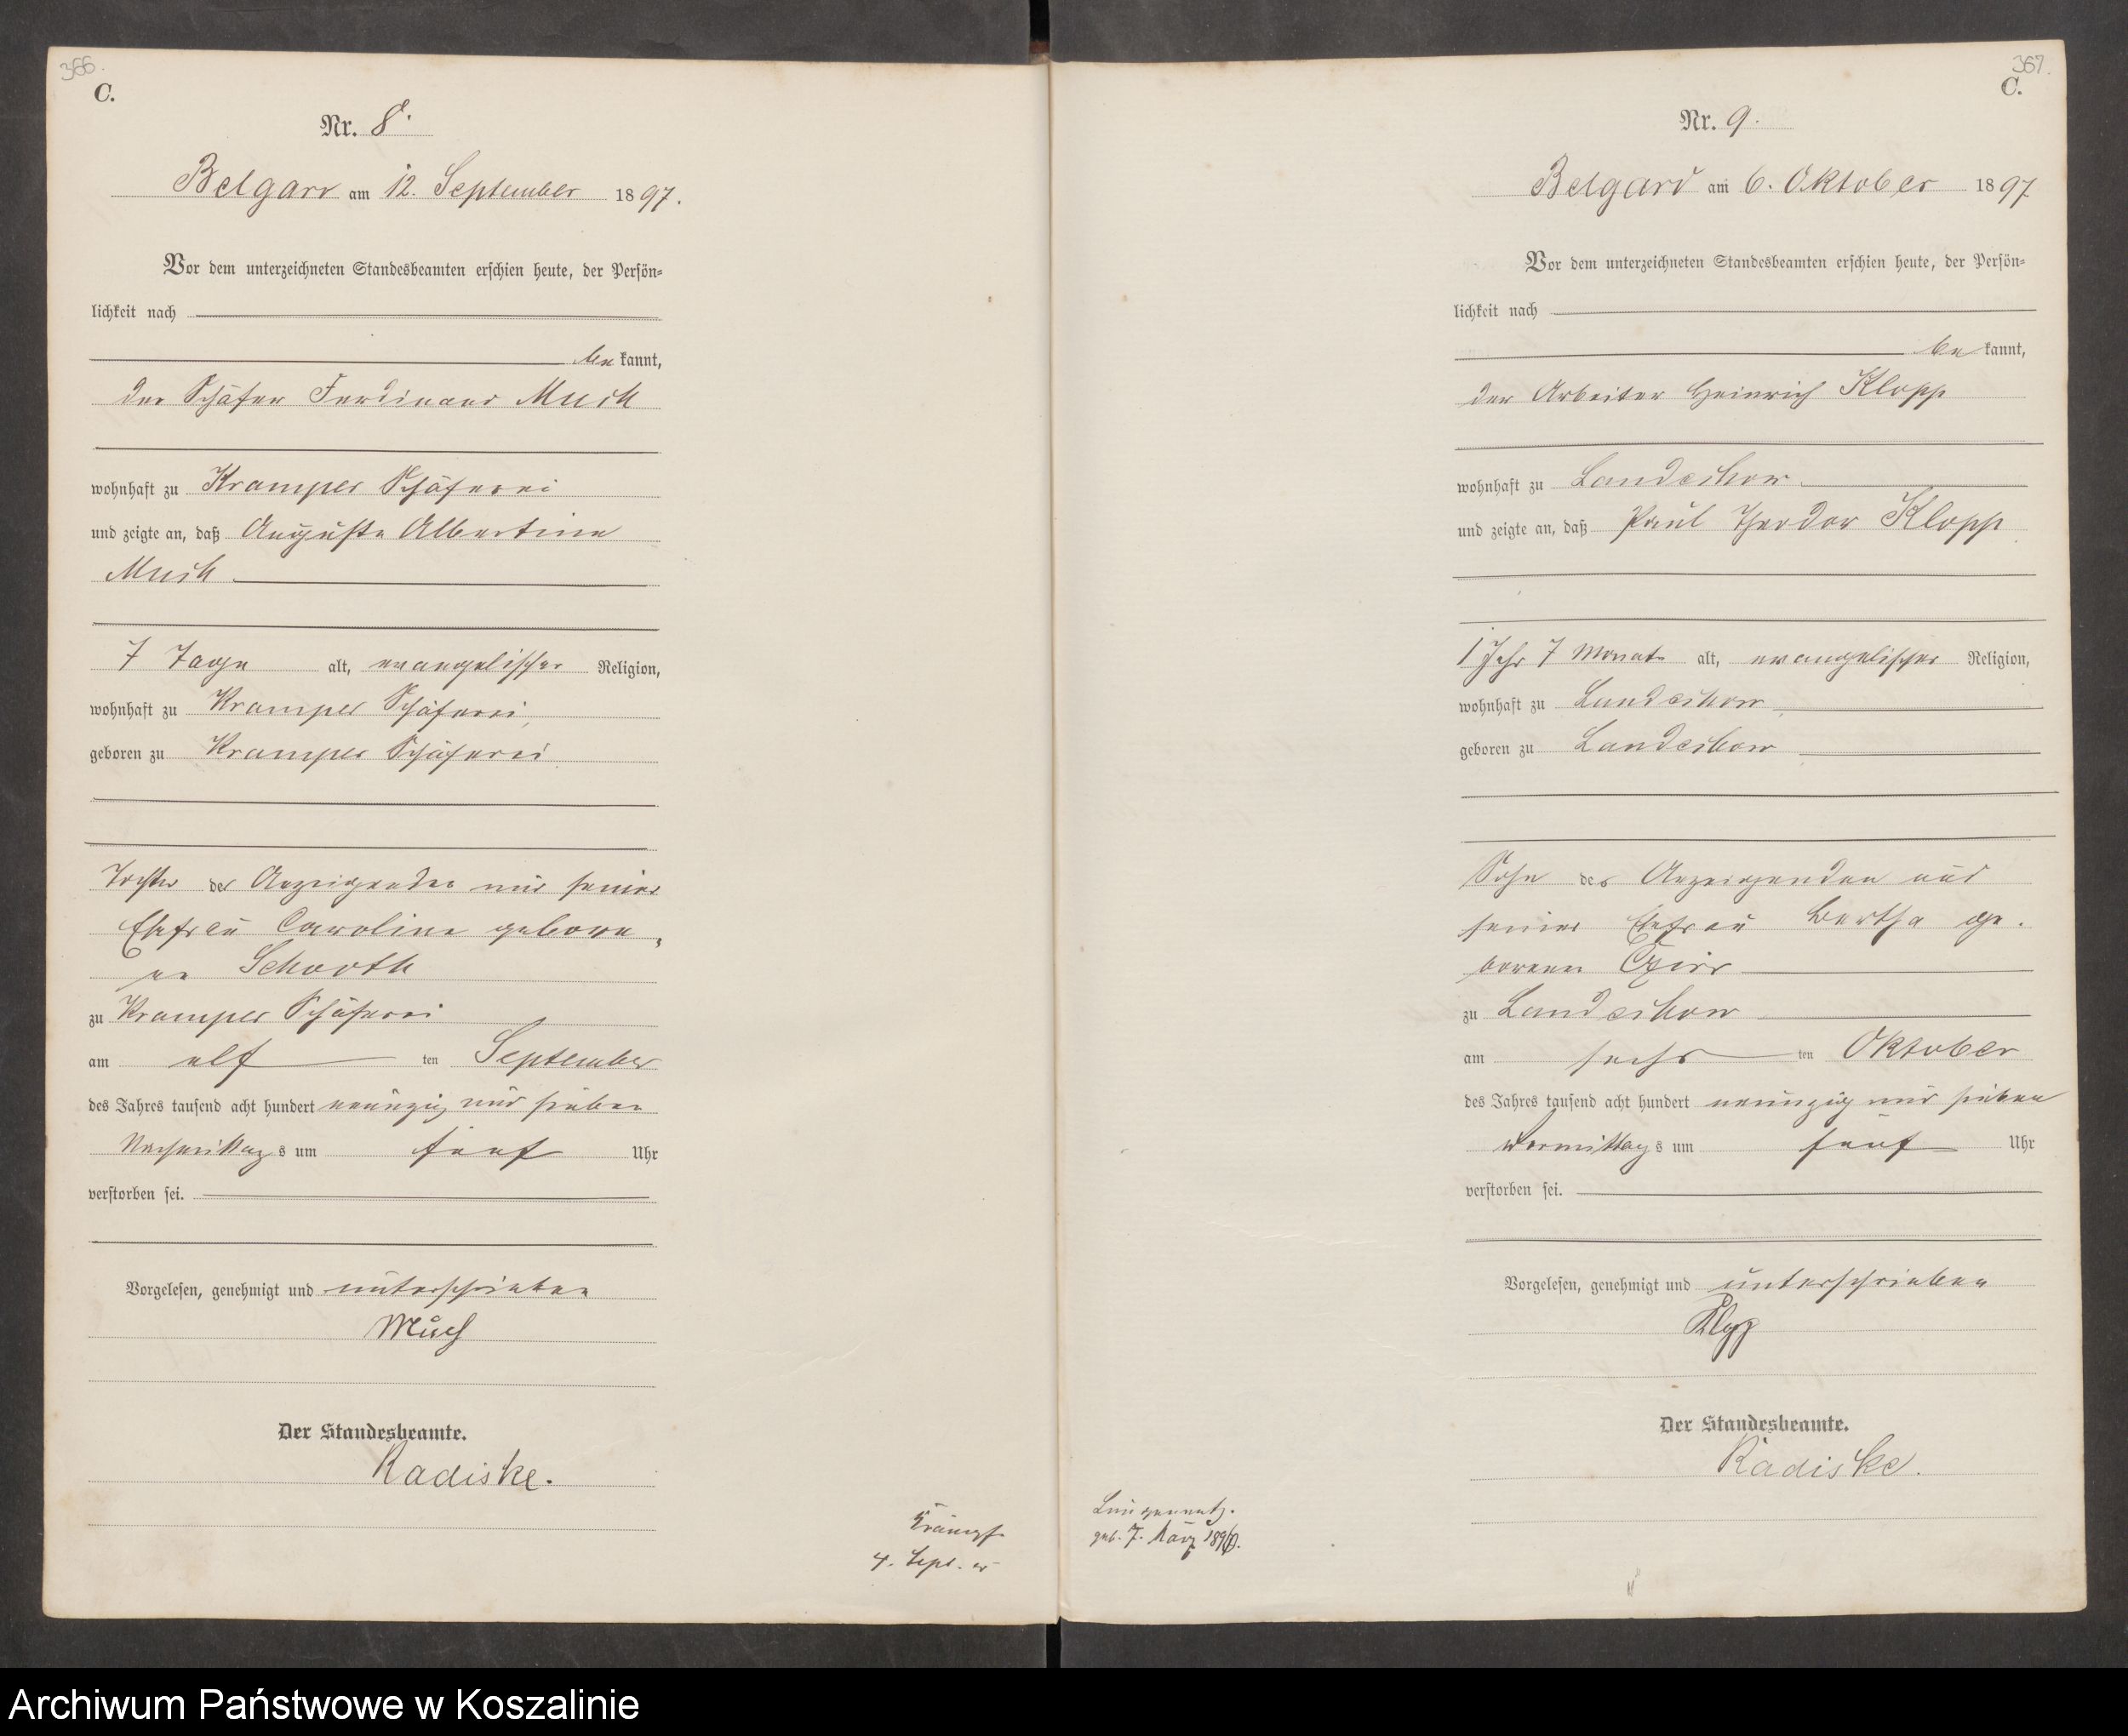 366.
C.
Nr. 8.
Belgard am 12. September 1897.
Vor dem unterzeichneten Standesbeamten erschien heute, der Persön-
lichkeit nach
bekannt,
der Schäfer Ferdinand Much
wohnhaft zu Kramper Schäferei
und zeigte an, daß Auguste Albertine
Much
7 Tage alt, evangelischer Religion,
wohnhaft zu Kramper Schäferei,
geboren zu Kramper Schäferei
Tochter des Anzeigenden und seiner
Ehefrau Caroline gebore-
ne
zu Kramper Schäferei
am elf ten September
des Jahres tausend acht hundert neunzig und sieben
Nachmittags um fünf Uhr
verstorben sei.
Vorgelesen, genehmigt und unterschrieben
Much
Der Standesbeamte.
Radiske.
Krämpfe
4. Sept. cr
367.
C.
Nr. 9.
Belgard am 6. Oktober 1897
Vor dem unterzeichneten Standesbeamten erschien heute, der Persön-
lichkeit nach
bekannt,
der Arbeiter Heinrich Klopp
wohnhaft zu Landechow
und zeigte an, daß Paul Theodor Klopp
1 Jahr 7 Monate alt, evangelischer Religion,
wohnhaft zu Landechow
geboren zu Landechow
Sohn des Anzeigenden und
seiner Ehefrau Bertha ge-
borenen
zu Landechow
am sechs ten Oktober
des Jahres tausend acht hundert neunzig und sieben
Vormittags um fünf Uhr
verstorben sei.
Vorgelesen, genehmigt und unterschrieben
Der Standesbeamte.
Radiske.
geb. 7. März
Archiwum Państwowe w Koszalinie